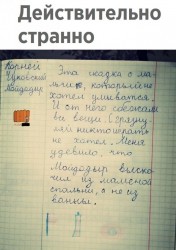 Действительно
странно
Корней
Чуковский
Мойдодыр
Эта сказка о ма-
льчике, который не
хотел умываться.
И от него сбежали
все вещи. С грязну-
лей никто играть
не хотел. Меня
удивило, что
Мойдодыр выско-
чил из маминой
спальни, а не из
ванны.